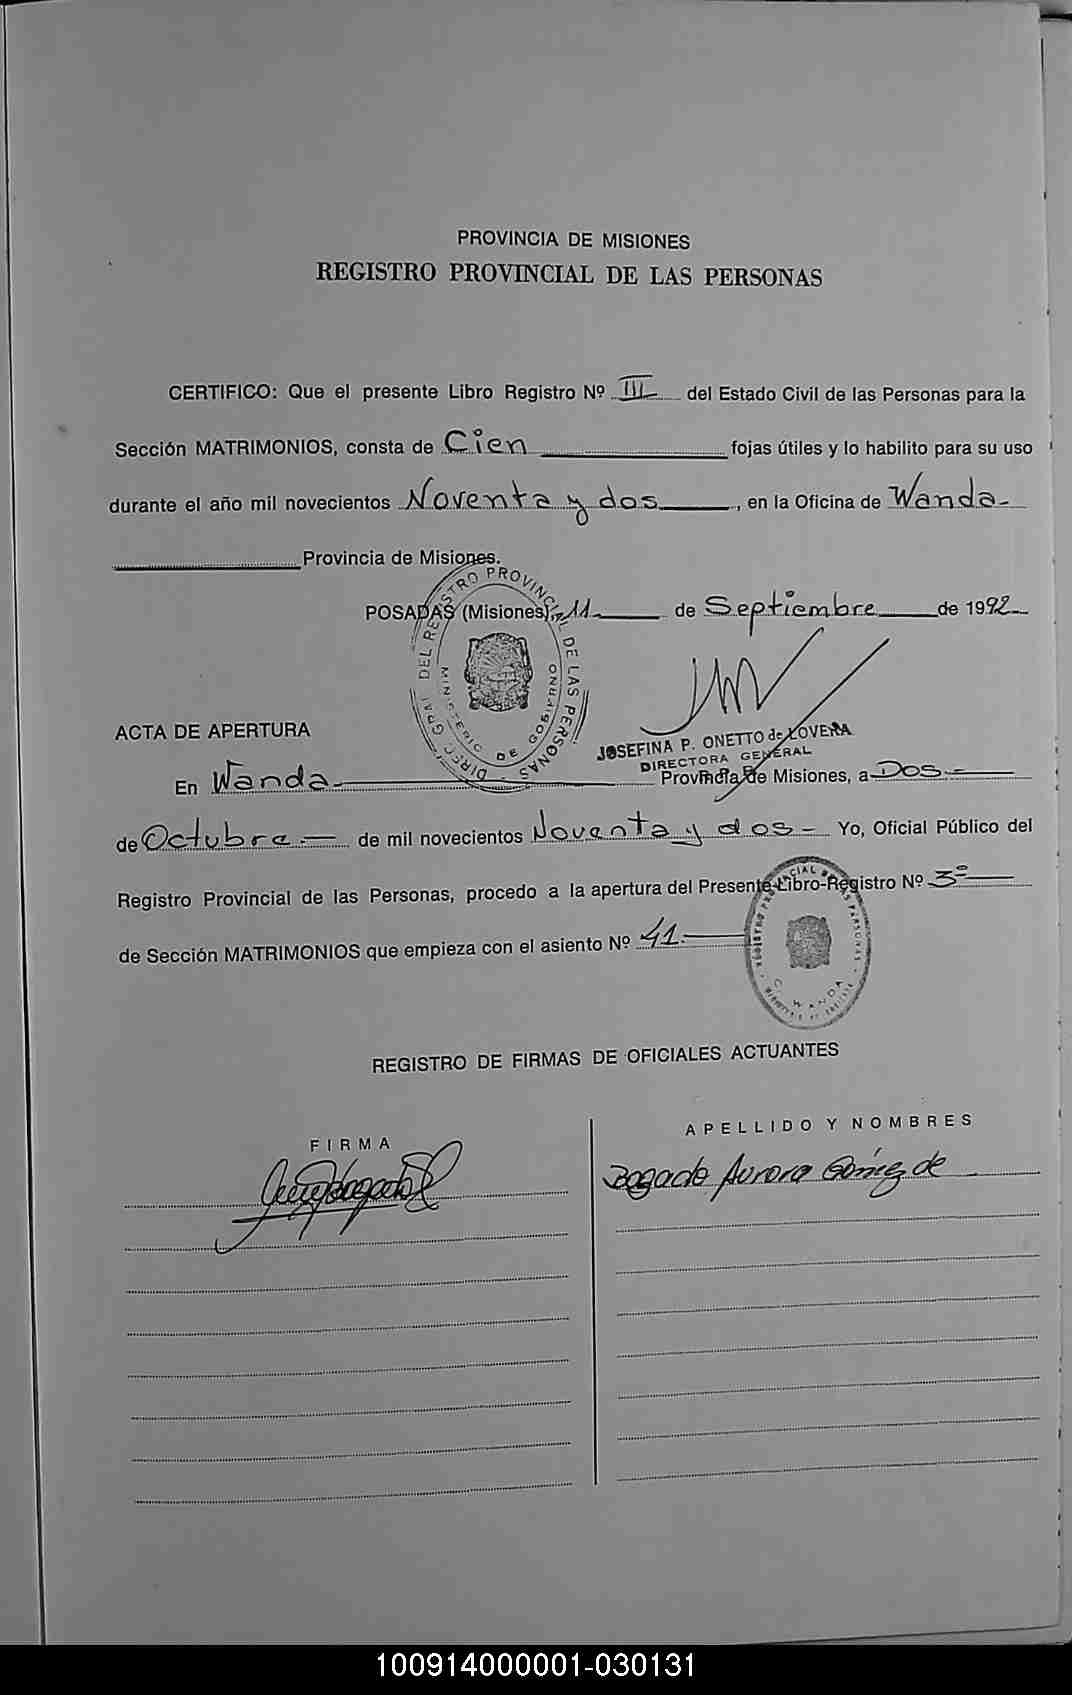 PROVINCIA DE MISIONES
REGISTRO PROVINCIAL DE LAS PERSONAS
CERTIFICO: Que el presente Libro Registro Nº III del Estado Civil de las Personas para la
Sección MATRIMONIOS, consta de Cien fojas útiles y lo habilito para su uso
durante el año mil novecientos Noventa y dos, en la Oficina de Wanda-
Provincia de Misiones.
POSADAS (Misiones), 11 de Septiembre de 1992
DIREC. GRAL. DEL REGISTRO PROVINCIAL DE LAS PERSONAS
MINISTERIO DE GOBIERNO
JOSEFINA P. ONETTO de LOVERA
DIRECTORA GENERAL
ACTA DE APERTURA
En Wanda- Provincia de Misiones, a Dos-
de Octubre.- de mil novecientos Noventa y dos- Yo, Oficial Público del
Registro Provincial de las Personas, procedo a la apertura del Presente Libro-Registro Nº 3º
de Sección MATRIMONIOS que empieza con el asiento Nº 41.-
REGISTRO PROVINCIAL DE LAS PERSONAS
WANDA
REGISTRO DE FIRMAS DE OFICIALES ACTUANTES
FIRMA
APELLIDO Y NOMBRES
Bogado Aurora Gómez de
100914000001-030131